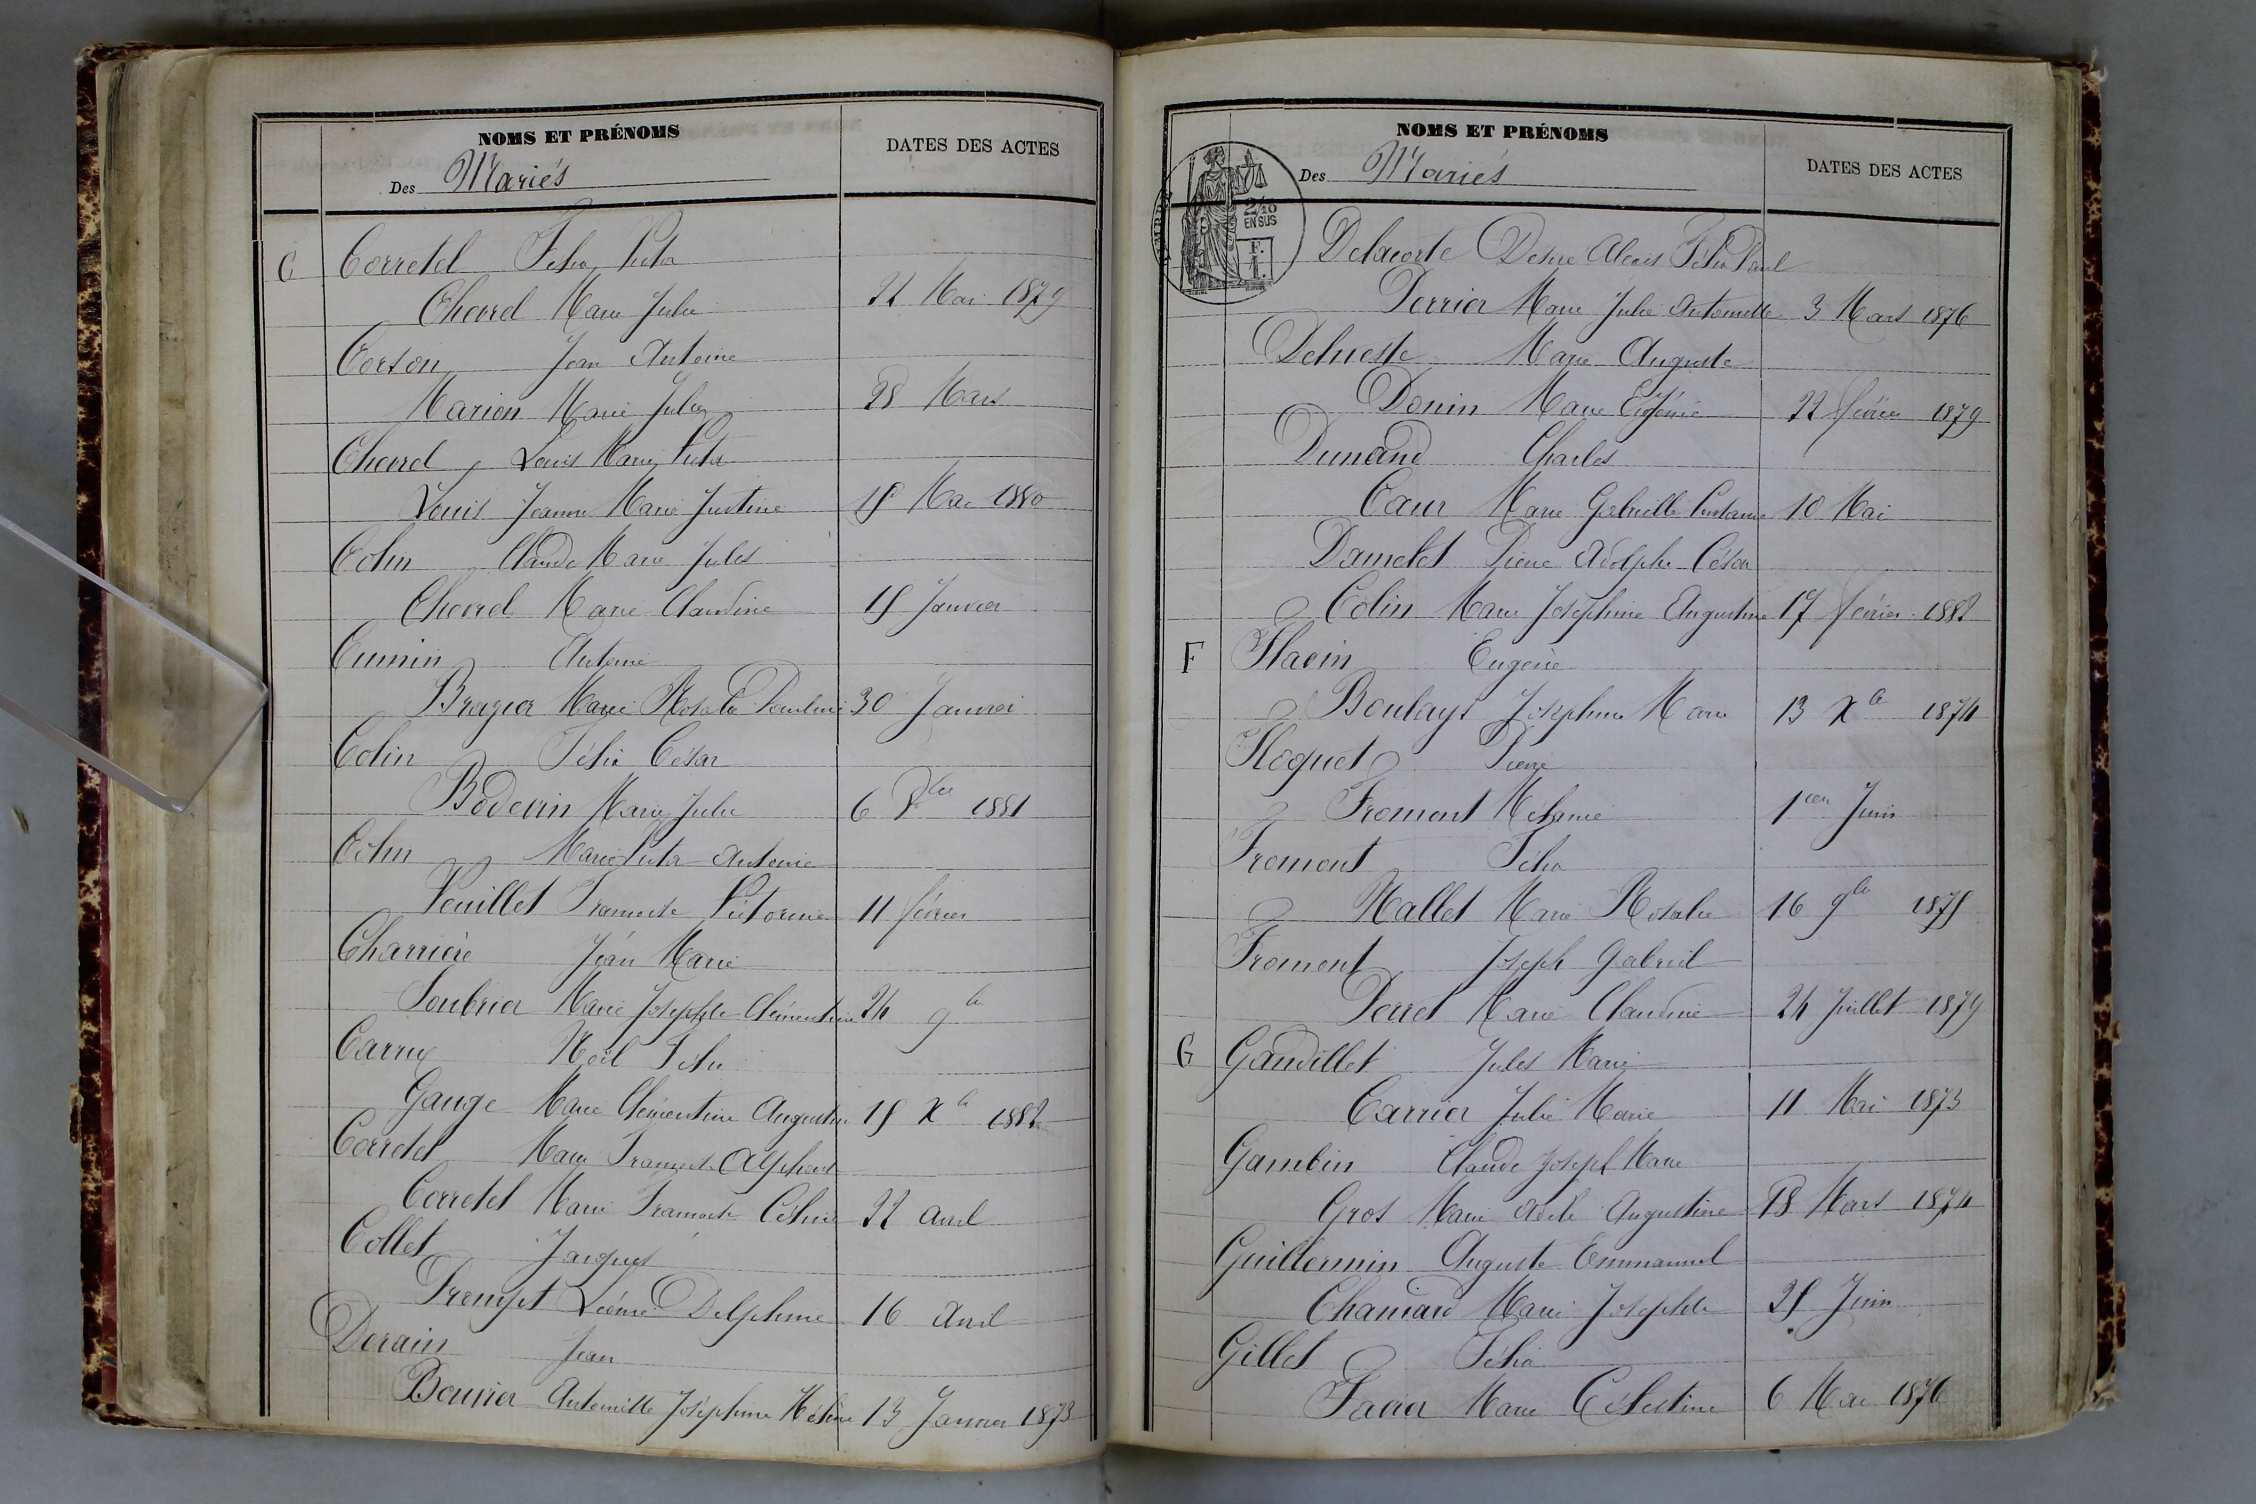 NOMS ET PRÉNOMS
DATES DES ACTES
Des Mariés
C Corretel Félix Victor
Chevrel Marie Julie 22 Mai 1879
Corson Jean Antoine
Marion Marie Julie 28 Mars
Chevrel Louis Marie Victor
Louis Jeanne Marie Justine 15 Mai 1880
Colin Claude Marie Jules
Chevrel Marie Claudine 15 Janvier
Cumin Antoine
Brazier Marie Rosalie Pauline 30 Janvier
Colin Félix César
Boderin Marie Julie 6 1881
Colin Marie Victor Antoine
Vuillet Françoise Victorine 11 février
Charrière Jean Marie
Loubrier Marie Josephte Clémentine 24 9bre
Carry Noël Félix
Gauge Marie Clémentine Augustine 15 Xbre 1882
Corretel Marie François Alphonse
Corretel Marie Françoise Céline 22 avril
Collet Jacques
Trempet Léonie Delphine 16 avril
Derain Jean
Bouvier Antoinette Joséphine Hélène 13 Janvier 1873
NOMS ET PRÉNOMS
DATES DES ACTES
Des Mariés
2/10
EN SUS
F.
1.
Delacorte Désiré Alexis Félix Paul
Perrier Marie Julie Antoinette 3 Mars 1876
Marie Auguste
Donin Marie Eugénie 22 février 1879
Dunand Charles
Cœur Marie Gabrielle Constance 10 Mai
Damelet Pierre Adolphe César
Colin Marie Joséphine Augustine 17 février 1882
F Flacin Eugène
Boulay Joséphine Marie 13 Xbre 1874
Floquet Pierre
Fromont Mélanie 1er Juin
Fromont Félix
Mallet Marie Rosalie 16 9bre 1875
Fromont Joseph Gabriel
Perret Marie Claudine 24 Juillet 1879
G Gaudillet Jules Marie
Carrier Julie Marie 11 Mai 1873
Gambin Claude Joseph Marie
Gros Marie Adèle Augustine 18 Mars 1874
Guillermin Auguste Emmanuel
Chanard Marie Josephte 25 Juin
Gillet Félix
Favier Marie Célestine 6 Mai 1876